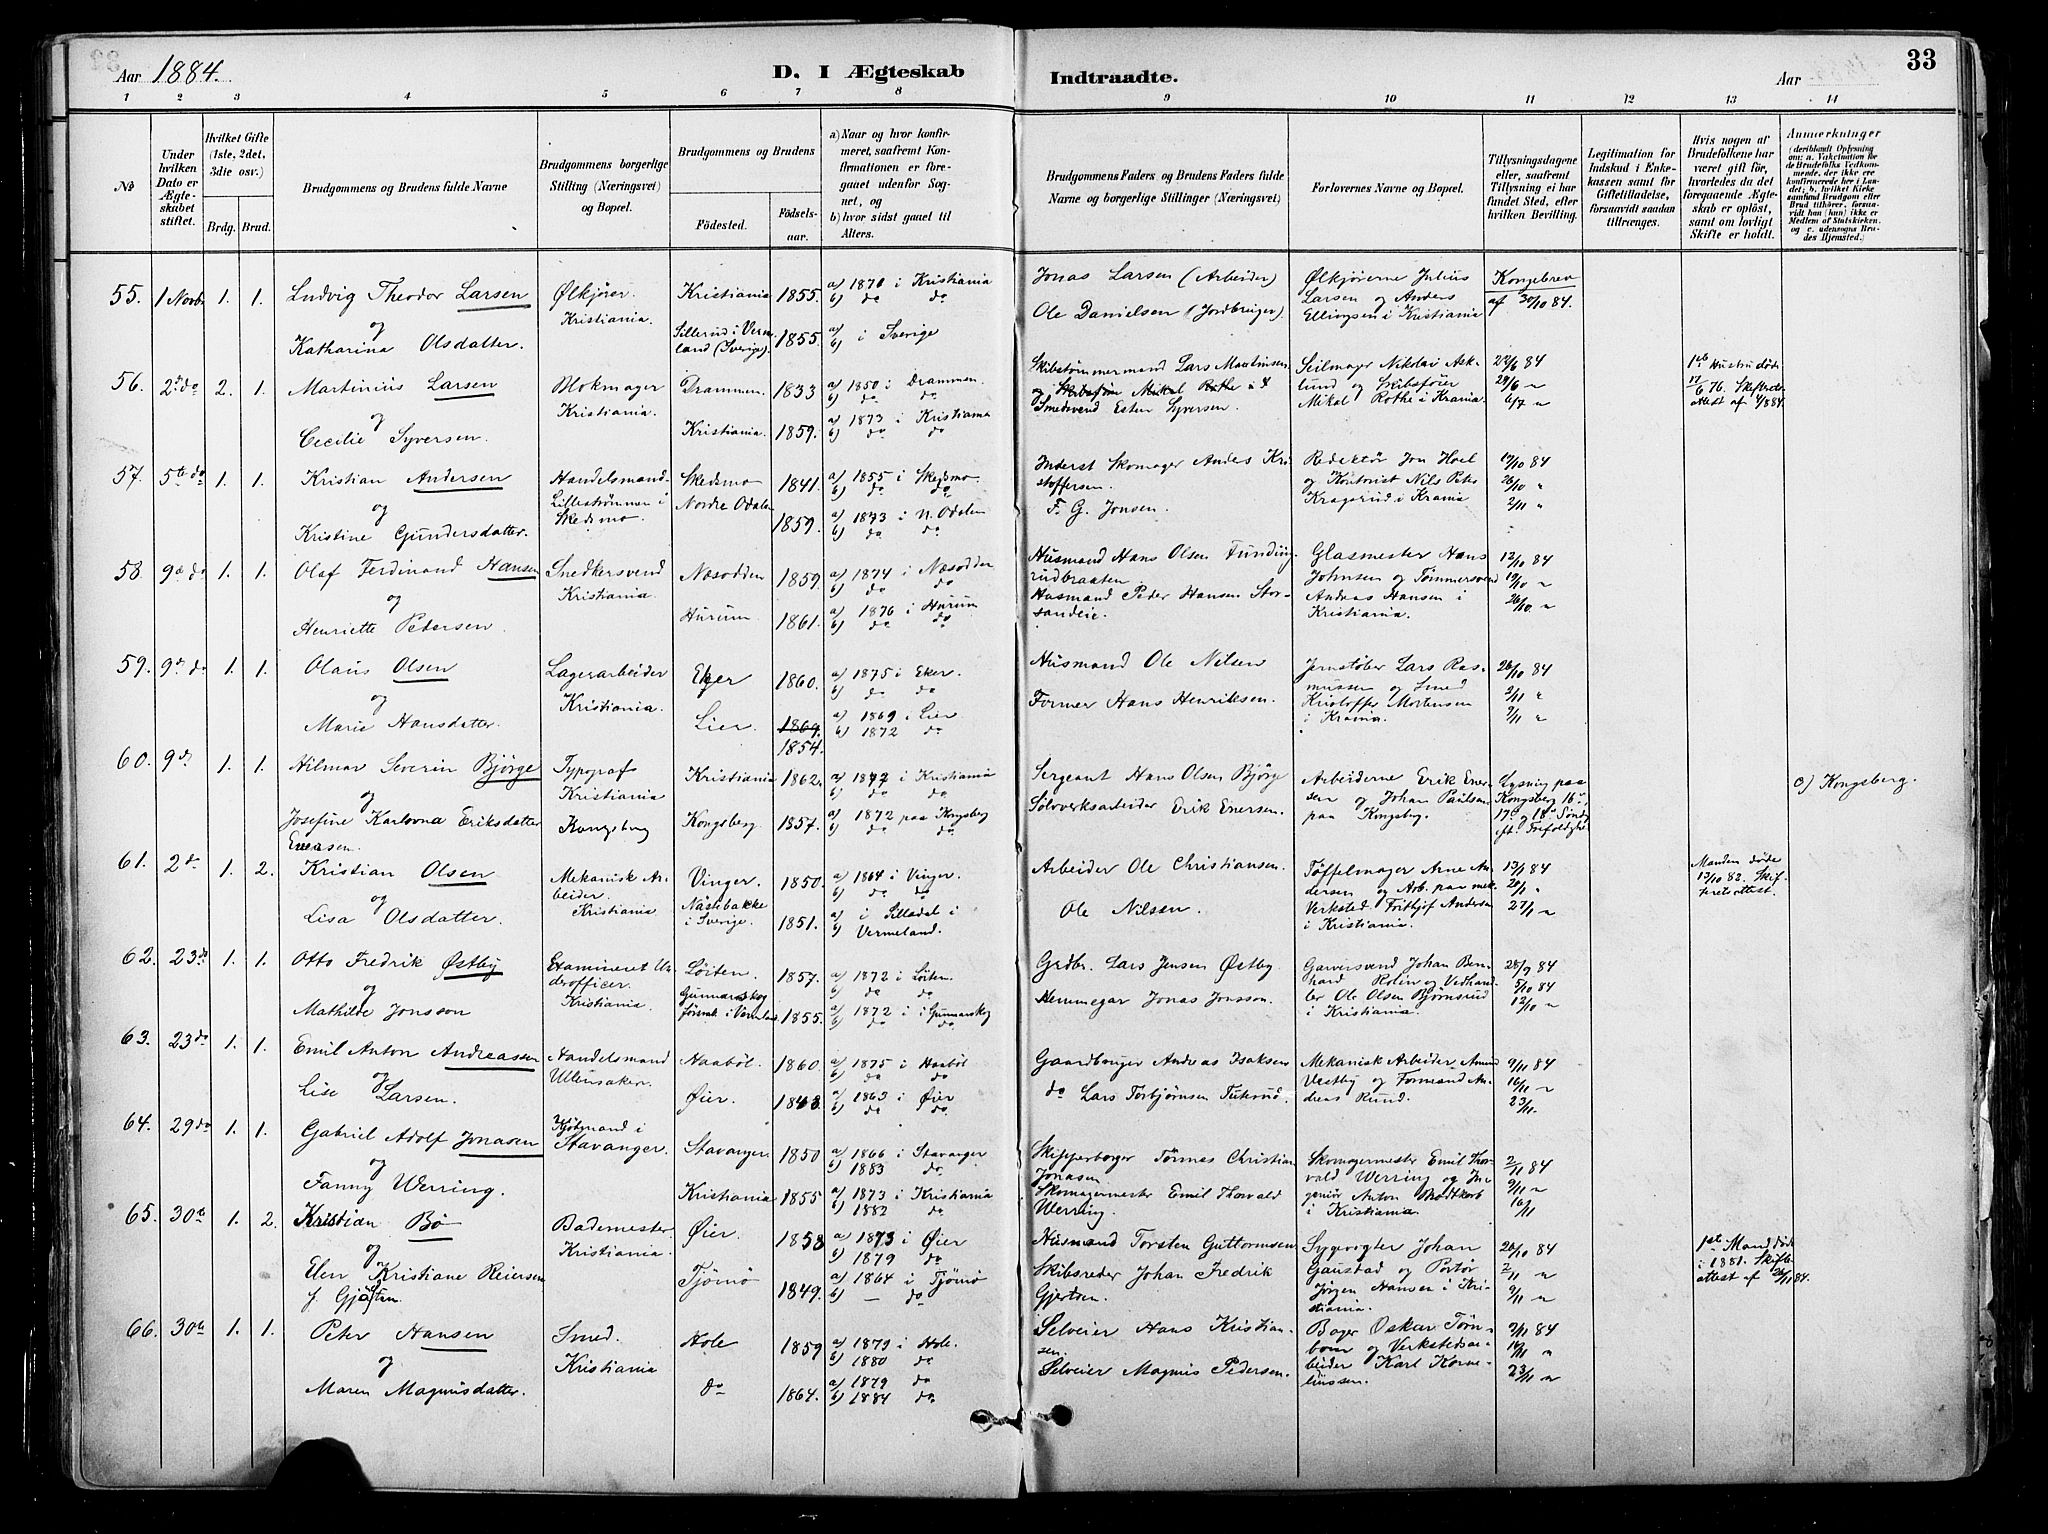 Aar 1884.
D. I Ægteskab Indtraadte.
Aar
33
1 2 3 4 5 6 7 8 9 10 11 12 13 14
No
Under hvilken Dato er Ægteskabet stiftet.
Hvilket Gifte (1ste, 2det, 3die osv.)
Brdg. Brud.
Brudgommens og Brudens fulde Navne
Brudgommens borgerlige Stilling (Næringsvei) og Bopæl.
Brudgommens og Brudens
Fødested.
Fødselsaar.
a) Naar og hvor konfirmeret, saafremt Konfirmationen er foregaaet udenfor Sognet, og
b) hvor sidst gaaet til Alters.
Brudgommens Faders og Brudens Faders fulde Navne og borgerlige Stillinger (Næringsvei)
Forlovernes Navne og Bopæl.
Tillysningsdagene eller, saafremt Tillysning ei har fundet Sted, efter hvilken Bevilling.
Legitimation for Indskud i Enkekassen samt for Giftetilladelse, forsaavidt saadan tiltrænges.
Hvis nogen af Brudefolkene har været gift før, hvorledes da det foregaaende Ægteskab er opløst, samt om lovligt Skifte er holdt.
Anmærkninger (deriblandt Oplysning om: a. Vakcination for de Brudefolks Vedkommende, der ikke ere konfirmerede her i Landet; b. hvilket Kirkesamfund Brudgom eller Brud tilhører, forsaavidt han (hun) ikke er Medlem af Statskirken, og c. udensogns Brudes Hjemsted.)
55. 1 Novbr 1. 1. Ludvig Theodor Larsen Ølkjører. Kristiania 1855. a) 1870 i Kristiania Jonas Larsen (Arbeider) Ølkjørerne Julius Kongebrev
og Kristiania. b) do do Larsen og Anders af 30/10 84.
Katharina Olsdatter. Sillerud i Vermland (Sverige). 1855. a) b) i Sverige Ole Danielsen (Jordbruger). Ellingsen i Kristiania
56. 2 do 2. 1. Martinius Larsen Blokmager Drammen. 1833 a) 1850 i Drammen. Skibstømmermand Lars Martinsen Seilmager Nikolai Asklund og Skibsfører 22/6 84 1ste Hustru døde
og Kristiania. b) do do Mikal Rothe i Krania. 29/6 " 17/6 76. Skifteattest af 4/8 84.
Cecilie Syversen. Kristiania. 1859. a) 1873 i Kristiania b) do do Smedsvend Esten Syversen. 6/7 "
57. 5te do 1. 1. Kristian Andersen Handelsmand Skedsmo 1841. a) 1855 i Skedsmo. Inderst Skomager Andes Kristoffersen. Redaktør Jon Hoel 19/10 84
og Lillestrømmen i Skedsmo. b) do do og Kontorist Nils Peter 26/10 "
Kristine Gundersdatter. Nordre Odalen 1859. a) 1873 i N. Odalen b) do do F. G. Jonsen. Kragerud i Krania 2/11 "
58. 9de do 1. 1. Olaf Ferdinand Hansen Snedkersvend Næsodden 1859. a) 1874 i Næsodden Husmand Hans Olsen Fundingrudbraaten Glasmester Hans 12/10 84
og Kristiania. b) do do Johnsen og Tømmersvend 19/10 "
Henriette Pedersen. Hurum 1861. a) 1876 i Hurum b) do do Husmand Peder Hansen Storsandeie. Andreas Hansen i Kristiania. 26/10 "
59. 9de do 1. 1. Olaus Olsen Lagerarbeider Eker 1860. a) 1875 i Eker. Husmand Ole Nilsen Jernstøber Lars Rasmussen og Smed 26/10 84
og Kristiania. b) do do 2/11 "
Marie Hansdatter. Lier. 1869. 1854. a) 1869 i Lier b) 1872 do Former Hans Henriksen. Kristoffer Mortensen i Krania. 9/11 "
60. 9 do 1. 1. Hilmar Severin Bjørge Typograf Kristiania 1862. a) 1877 i Kristiania Sergeant Hans Olsen Bjørge Arbeiderne Erik Enersen og Johan Paulsen Lysning paa Kongsberg 16., c) Kongsberg.
og Kristiania b) do do paa Kongsberg. 17. og 18. Søndg
Josefine Karlovna Eriksdatter Enersen. Kongsberg Kongsberg. 1857. a) 1872 paa Kongsberg b) do do Sølverksarbeider Erik Enersen. eft. Trefoldighe
61. 2 do 1. 2. Kristian Olsen Mekanisk Arbeider. Vinger. 1850. a) 1864 i Vinger. Arbeider Ole Christiansen. Tøffelmager Arne Andersen og Arb. paa mek. 13/1 84 Manden døde
og Kristiania b) do do Verksted Fritjof Andersen 20/1 " 13/10 82. Skifteretsattest.
Lisa Olsdatter. i Sverige. 1851. a) i b) Vermeland. Ole Nilsen. i Kristiania. 27/1 "
62. 23 do 1. 1. Otto Fredrik Østby Examineret Underofficer. Løiten. 1857. a) 1872 i Løiten. Grdbr. Lars Jensen Østby Garversvend Johan Bernhard Rolin og Vedhandler Ole Olsen Bjørnsrud 28/9 84
og Kristiania. b) do do 5/10 84
Mathilde Jonsson 1855. a) 1872 i Gunnarskog b) do do Jonas Jonsson. i Kristiania. 12/10 "
63. 23 do 1. 1. Emil Anton Andreassen Handelsmand Haabøl. 1860 a) 1875 i Haabøl Gaardbruger Andreas Isaksen Mekanisk Arbeider Amund 9/11 84
og Ullensaker. b) do do Vestby og Formand Andreas Ruud. 16/11 "
Lise Larsen. Øier. 1843. a) 1863 i Øier b) do do do Lars Torbjørnsen 23/11.
64. 29 do 1. 1. Gabriel Adolf Jonasen Kjøbmand i Stavanger. Stavanger. 1850 a) 1866 i Stavanger Skipperborger Tønnes Christian Jonasen Skomagermester Emil Thorvald Werring og Ingeniør Anton 2/11 84
og b) 1883 do 9/11 "
Fanny Werring. Kristiania 1855 a) 1873 i Kristiania b) 1882 do Skomagermester Emil Thorvald Werring. i Kristiania. 16/11
65. 30te 1. 2. Kristian Bø Bademester Øier. 1858 a) 1873 i Øier Husmand Torsten Guttormsen Sygevogter Johan 26/10 84 1ste Mand døde
og Kristiania. b) 1879 do Gausdad og Portør 2/11 " i 1881. Skifteattest af 26/11 84.
Elen Kristiane Reiersen f. Gjertsen. Tjømø 1849. a) 1864 i Tjømø b) — do Skibsreder Johan Fredrik Gjertsen. Jørgen Hansen i Kristiania. 9/11 "
66. 30te 1. 1. Peter Hansen Smed. Hole 1859 a) 1873 i Hole. Selveier Hans Kristiansen. Bager Oskar Tørnbom og Verkstedsarbeider Karl Korneliussen. 9/11 84
og Kristiania b) 1880 do 16/11 "
Maren Magnusdatter. do 1864. a) 1879 do b) 1884 do Selveier Magnus Pedersen. 23/11 "